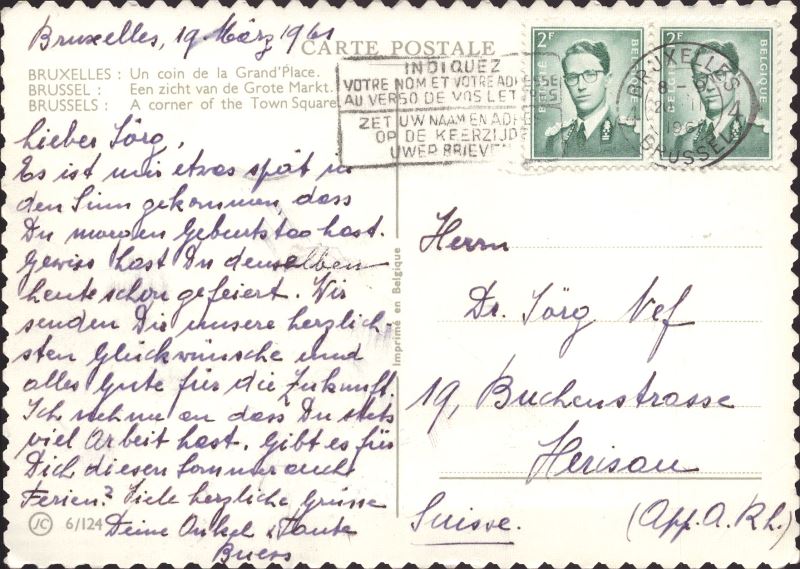 Bruxelles, 19 März 1961
CARTE POSTALE
BRUXELLES : Un coin de la Grand'Place.
BRUSSEL : Een zicht van de Grote Markt.
BRUSSELS : A corner of the Town Square
INDIQUEZ
VOTRE NOM ET VOTRE ADRESSE
AU VERSO DE VOS LETTRES
ZET UW NAAM EN ADRES
OP DE KEERZIJDE
UWER BRIEVEN
2F BELGIE BELGIQUE
2F BELGIE BELGIQUE
BRUXELLES
8 - 9
BRUSSEL
4
Lieber Jörg,
Es ist mir etwas spät in
den Sinn gekommen, dass
Du morgen Geburtstag hast.
Gewiss hast Du denselben
heute schon gefeiert. Wir
senden Dir unsere herzlich-
sten Glückwünsche und
alles Gute für die Zukunft.
Ich nehme an dass Du stets
viel Arbeit hast. Gibt es für
Dich diesen Sommer auch
Ferien? Viele herzliche Grüsse
Deine Onkel & Tante
JC 6/124
Imprimé en Belgique
Herrn
Dr. Jörg Nef
19, Buchenstrasse
Herisau
Suisse. (App. A. Rh.)